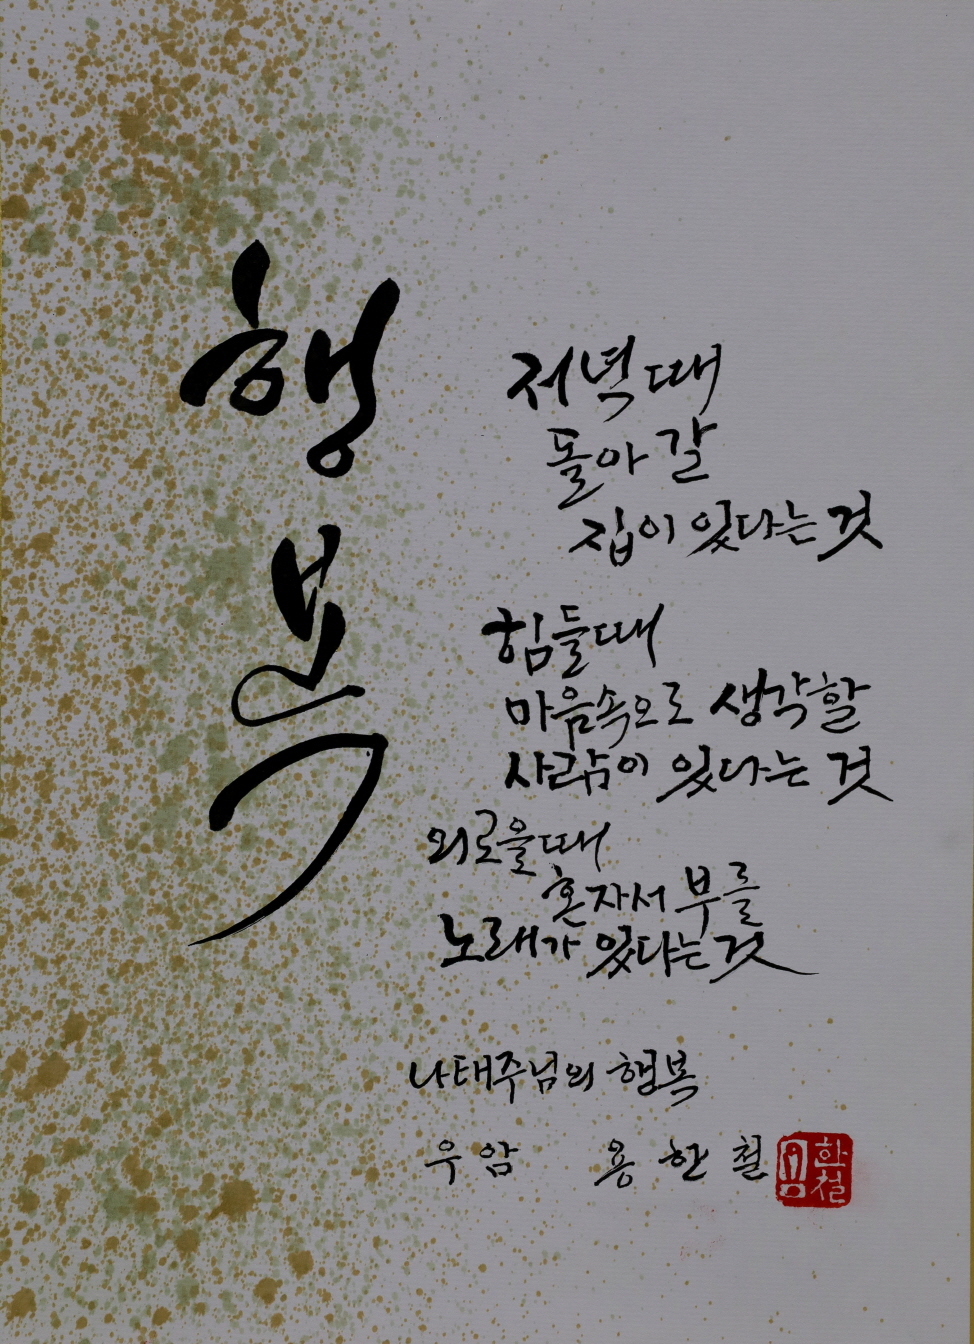 행복
저녁때
돌아갈
집이 있다는 것
힘들때
마음속으로 생각할
사람이 있다는 것
외로울때
혼자서 부를
노래가 있다는 것
나태주님의 행복
우암 용한철
용한철